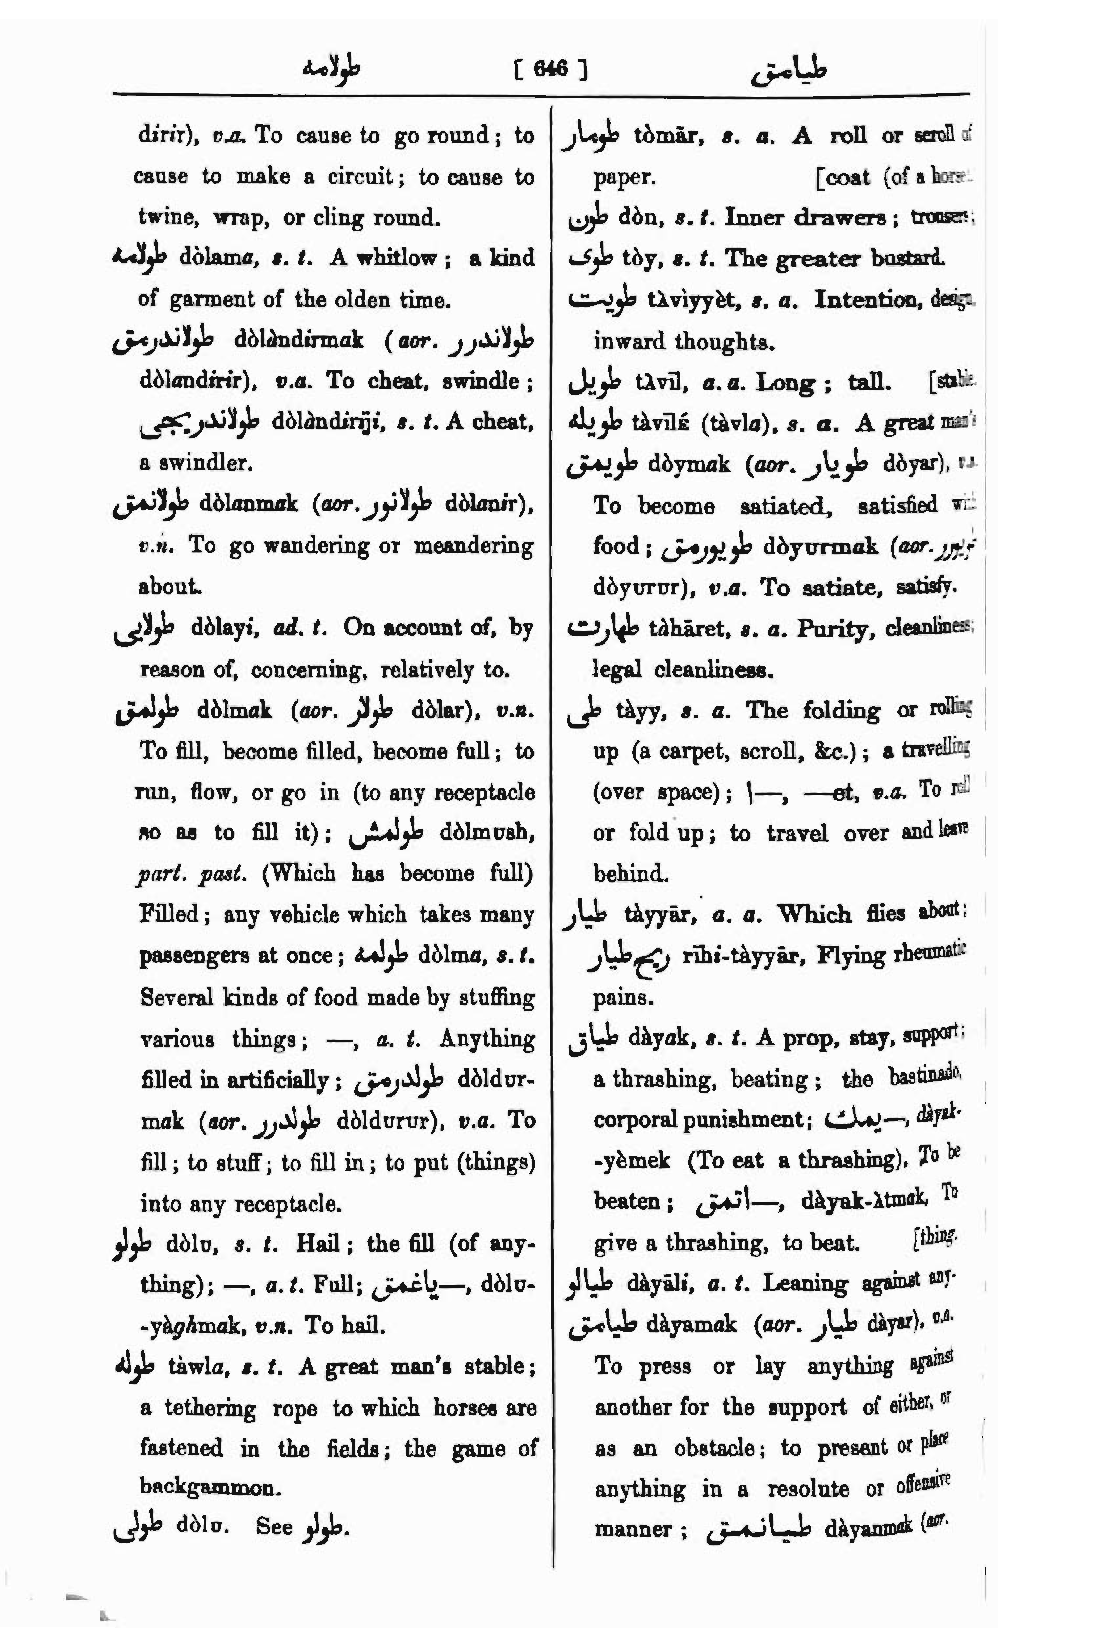 طولامه [ 646 ] طيامق
dirir), v.a. To cause to go round; to
cause to make a circuit; to cause to
twine, wrap, or cling round.
طولامه dòlama, s. t. A whitlow; a kind
of garment of the olden time.
طولاندرمق dòlàndirmak (aor. طولاندرر
dòlandirir), v.a. To cheat, swindle;
طولاندريجى dòlàndiriji, s. t. A cheat,
a swindler.
طولانمق dòlanmak (aor. طولانور dòlanir),
v.n. To go wandering or meandering
about.
طولايى dòlayi, ad. t. On account of, by
reason of, concerning, relatively to.
طولمق dòlmak (aor. طولار dòlar), v.n.
To fill, become filled, become full; to
run, flow, or go in (to any receptacle
so as to fill it); طولمش dòlmush,
part. past. (Which has become full)
Filled; any vehicle which takes many
passengers at once; طولمه dòlma, s. t.
Several kinds of food made by stuffing
various things; —, a. t. Anything
filled in artificially; طولدرمق dòldur-
mak (aor. طولدرر dòldurur), v.a. To
fill; to stuff; to fill in; to put (things)
into any receptacle.
طولو dòlu, s. t. Hail; the fill (of any-
thing); —, a. t. Full; —ياغمق, dòlu-
-yàghmak, v.n. To hail.
طوله tàwla, s. t. A great man's stable;
a tethering rope to which horses are
fastened in the fields; the game of
backgammon.
طولى dòlu. See طولو.
طومار tòmār, s. a. A roll or scroll of
paper. [coat (of a horse).
طون dòn, s. t. Inner drawers; trousers;
طوى tòy, s. t. The greater bustard.
طويت tàvìyyèt, s. a. Intention, design,
inward thoughts.
طويل tàvīl, a. a. Long; tall. [stable.
طويله tàvīlé (tàvla), s. a. A great man's
طويمق dòymak (aor. طويار dòyar), v.n.
To become satiated, satisfied with
food; طويورمق dòyurmak (aor. طويورر
dòyurur), v.a. To satiate, satisfy.
طهارت tàhāret, s. a. Purity, cleanliness;
legal cleanliness.
طى tàyy, s. a. The folding or rolling
up (a carpet, scroll, &c.); a travelling
(over space); \—, —et, v.a. To roll
or fold up; to travel over and leave
behind.
طيار tàyyār, a. a. Which flies about;
ريح طيار rīhi-tàyyār, Flying rheumatic
pains.
طياق dàyak, s. t. A prop, stay, support;
a thrashing, beating; the bastinado,
corporal punishment; —يمك, dàyak-
-yèmek (To eat a thrashing), To be
beaten; —اتمق, dàyak-àtmak, To
give a thrashing, to beat. [thing.
طيالو dàyāli, a. t. Leaning against any-
طيامق dàyamak (aor. طيار dàyar), v.a.
To press or lay anything against
another for the support of either, or
as an obstacle; to present or place
anything in a resolute or offensive
manner; طيانمق dàyanmak (aor.